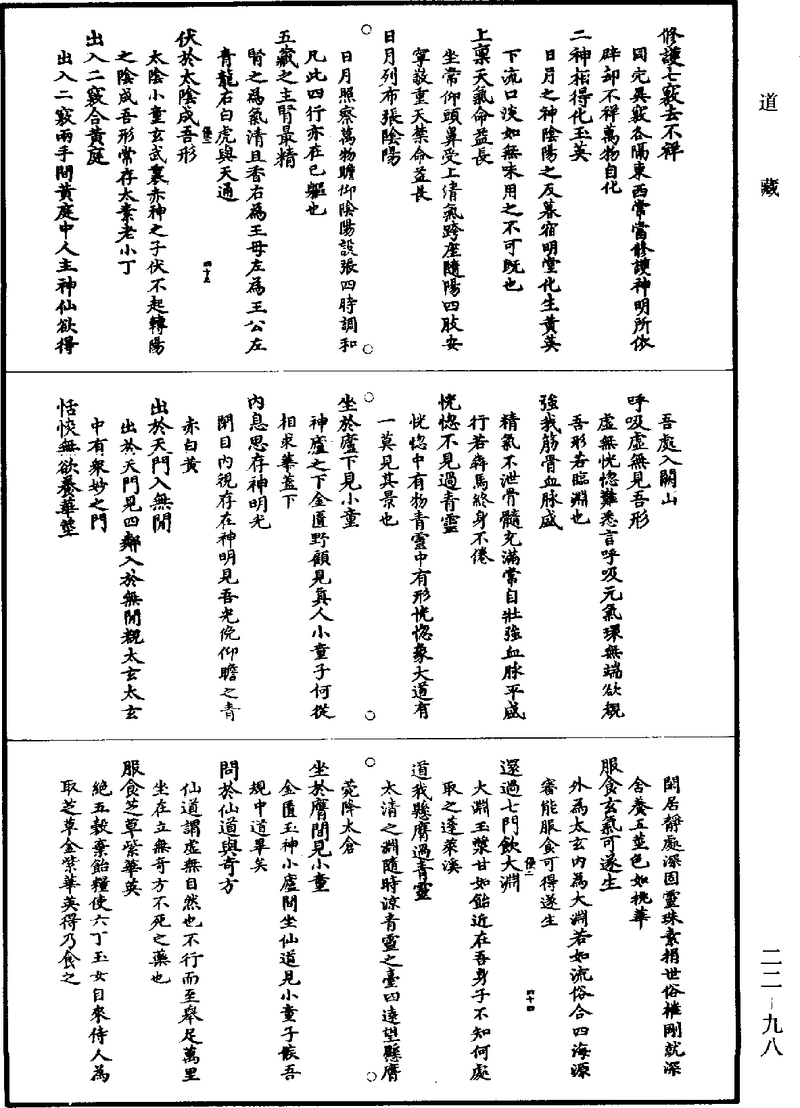 道藏
修護七竅去不祥
同先異竅各隔東西常當修護神明所依
辟却不祥萬物自化
二神相得化玉英
日月之神陰陽之反暮宿明堂化生黃英
下流口淡如無味用之不可既也
上稟天氣命益長
坐常仰頭鼻受上清氣跨座隨陽四肢安
寧敬重天禁命益長
日月列布張陰陽
日月照察萬物瞻仰陰陽設張四時調和
凡此四行亦在己軀也
五藏之主腎最精
腎之為氣清且香右為王母左為王公左
青龍右白虎與天通
伏於太陰成吾形
太陰小童玄武裹赤神之子伏不起轉陽
之陰成吾形常存太素老小丁
出入二竅合黃庭
出入二竅兩手間黃庭中人主神仙欲得
吾處入關山
呼吸虛無見吾形
虛無恍惚難悉言呼吸元氣環無端欲覩
吾形若臨淵也
強我筋骨血脉盛
精氣不泄骨髓充滿常自壯強血脉平盛
行若犇馬終身不倦
恍惚不見過青靈
恍惚中有物青靈中有形恍惚象大道有
一莫見其景也
坐於廬下見小童
神廬之下金匱野顧見真人小童子何從
相求華蓋下
內息思存神明光
閉目內視存在神明見吾光俛仰瞻之青
赤白黃
出於天門入無間
出於天門見四鄰入於無間覩太玄太玄
中有衆妙之門
恬惔無欲養華莖
閑居靜處深固靈珠素捐世俗摧剛就深
舍養五莖色如桃華
服食玄氣可遂生
外為太玄內為大淵若如流俗合四海源
審能服食可得遂生
還過七門飲大淵
大淵玉漿甘如飴近在吾身子不知何處
取之蓬萊溪
道我懸膺過青靈
太清之淵隨時涼青靈之臺四遠望懸膺
菀降太倉
坐於膺間見小童
金匱玉神小廬間坐仙道見小童子骸吾
規中道畢矣
問於仙道與奇方
仙道謂虛無自然也不行而至舉足萬里
坐在立無奇方不死之藥也
服食芝草紫華英
絕五穀棄飴糧使六丁玉女自來侍人為
取芝草金紫華英得乃食之
二二—九八